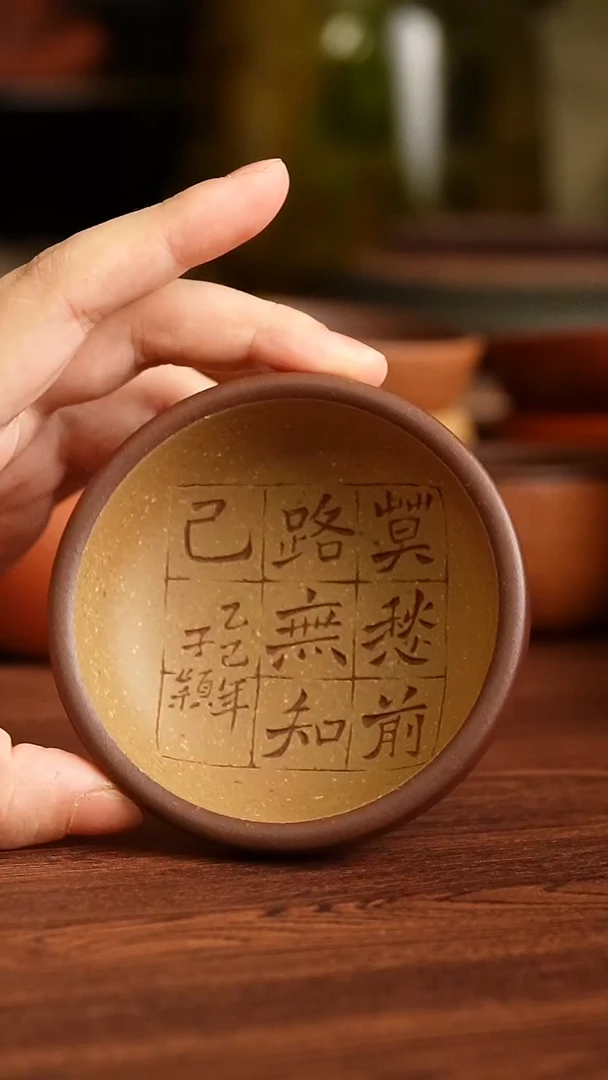 莫愁前
路無知
己
乙巳年
子穎